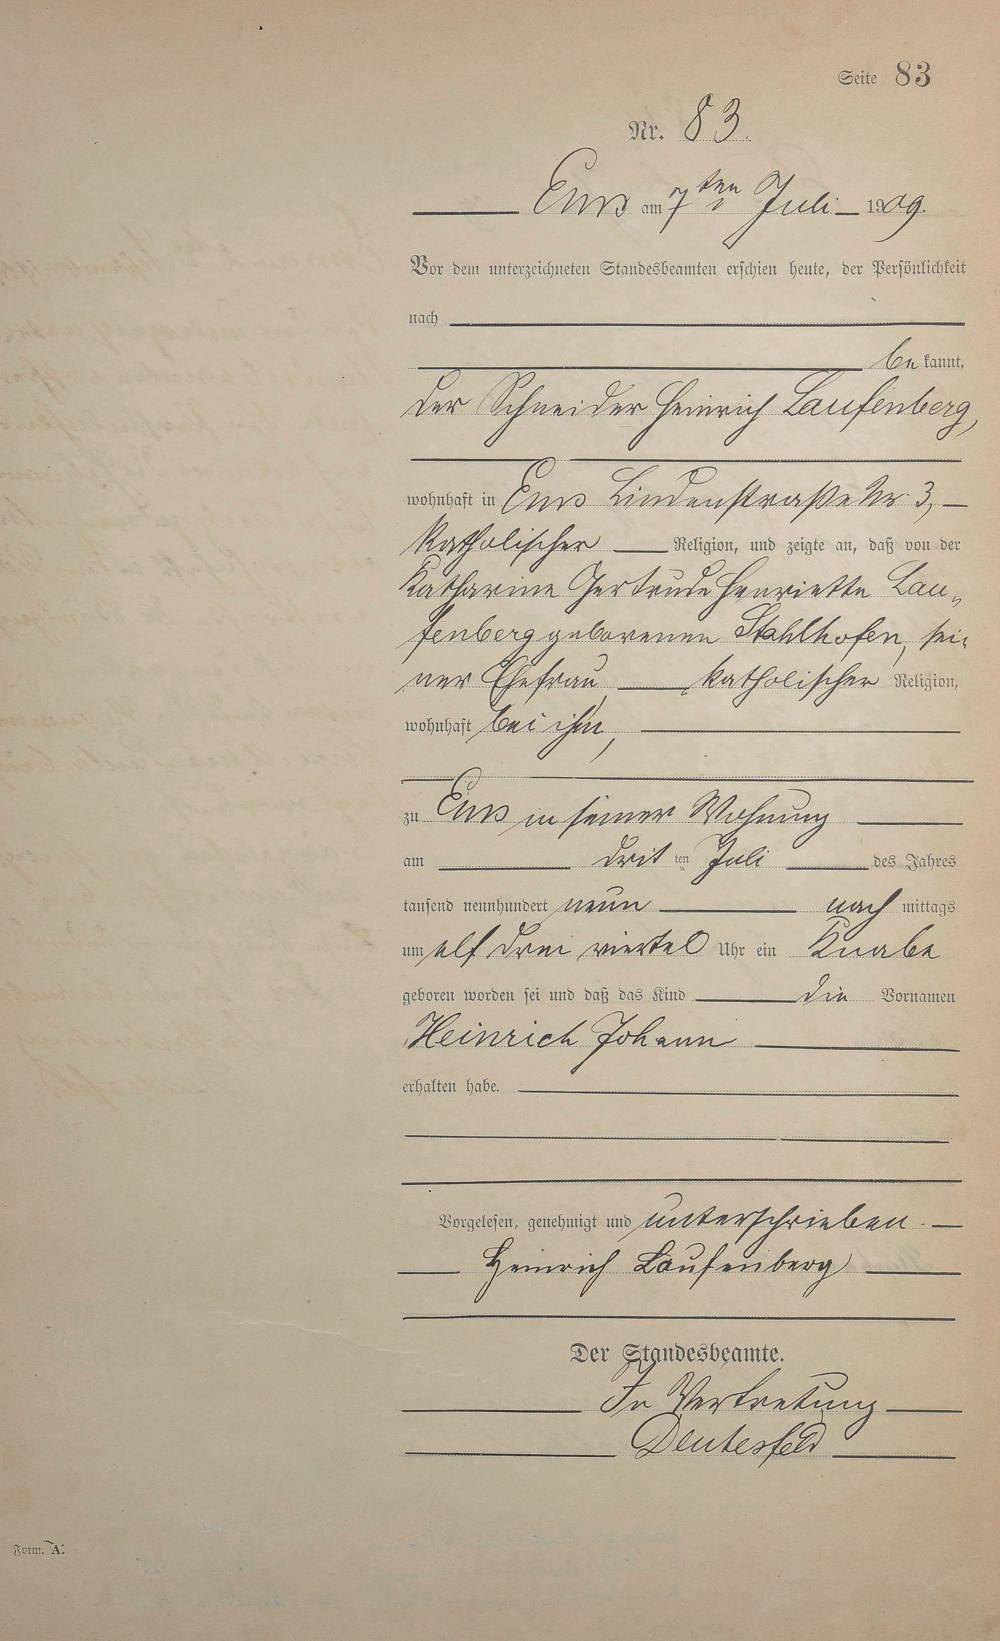 Seite 83
Nr. 83.
Ems am 7ten Juli 1909.
Vor dem unterzeichneten Standesbeamten erschien heute, der Persönlichkeit
nach
be kannt,
der Schneider Heinrich Laufenberg,
wohnhaft in Ems Lindenstraße Nr. 3,
katholischer Religion, und zeigte an, daß von der
Katharine Gertrude Henriette Lau„
fenberg geborenen Stahlhofen, sei„
ner Ehefrau, katholischer Religion,
wohnhaft bei ihm,
zu Ems in seiner Wohnung
am drit ten Juli des Jahres
tausend neunhundert neun nach mittags
um elf drei viertel Uhr ein Knabe
geboren worden sei und daß das Kind die Vornamen
Heinrich Johann
erhalten habe.
Vorgelesen, genehmigt und unterschrieben.
Heinrich Laufenberg
Der Standesbeamte.
In Vertretung
Deutesfeld
Form. A.